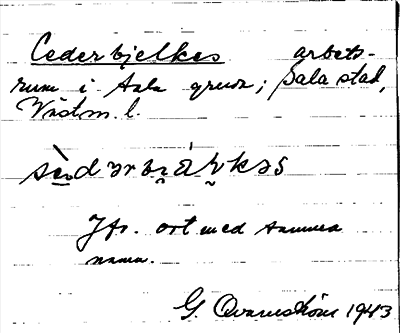 Cederbjelkes arbets-
rum i Sala gruva; Sala stad,
Västm. l.
Jfr. ort med samma
namn.
G. Qvarnström 1943